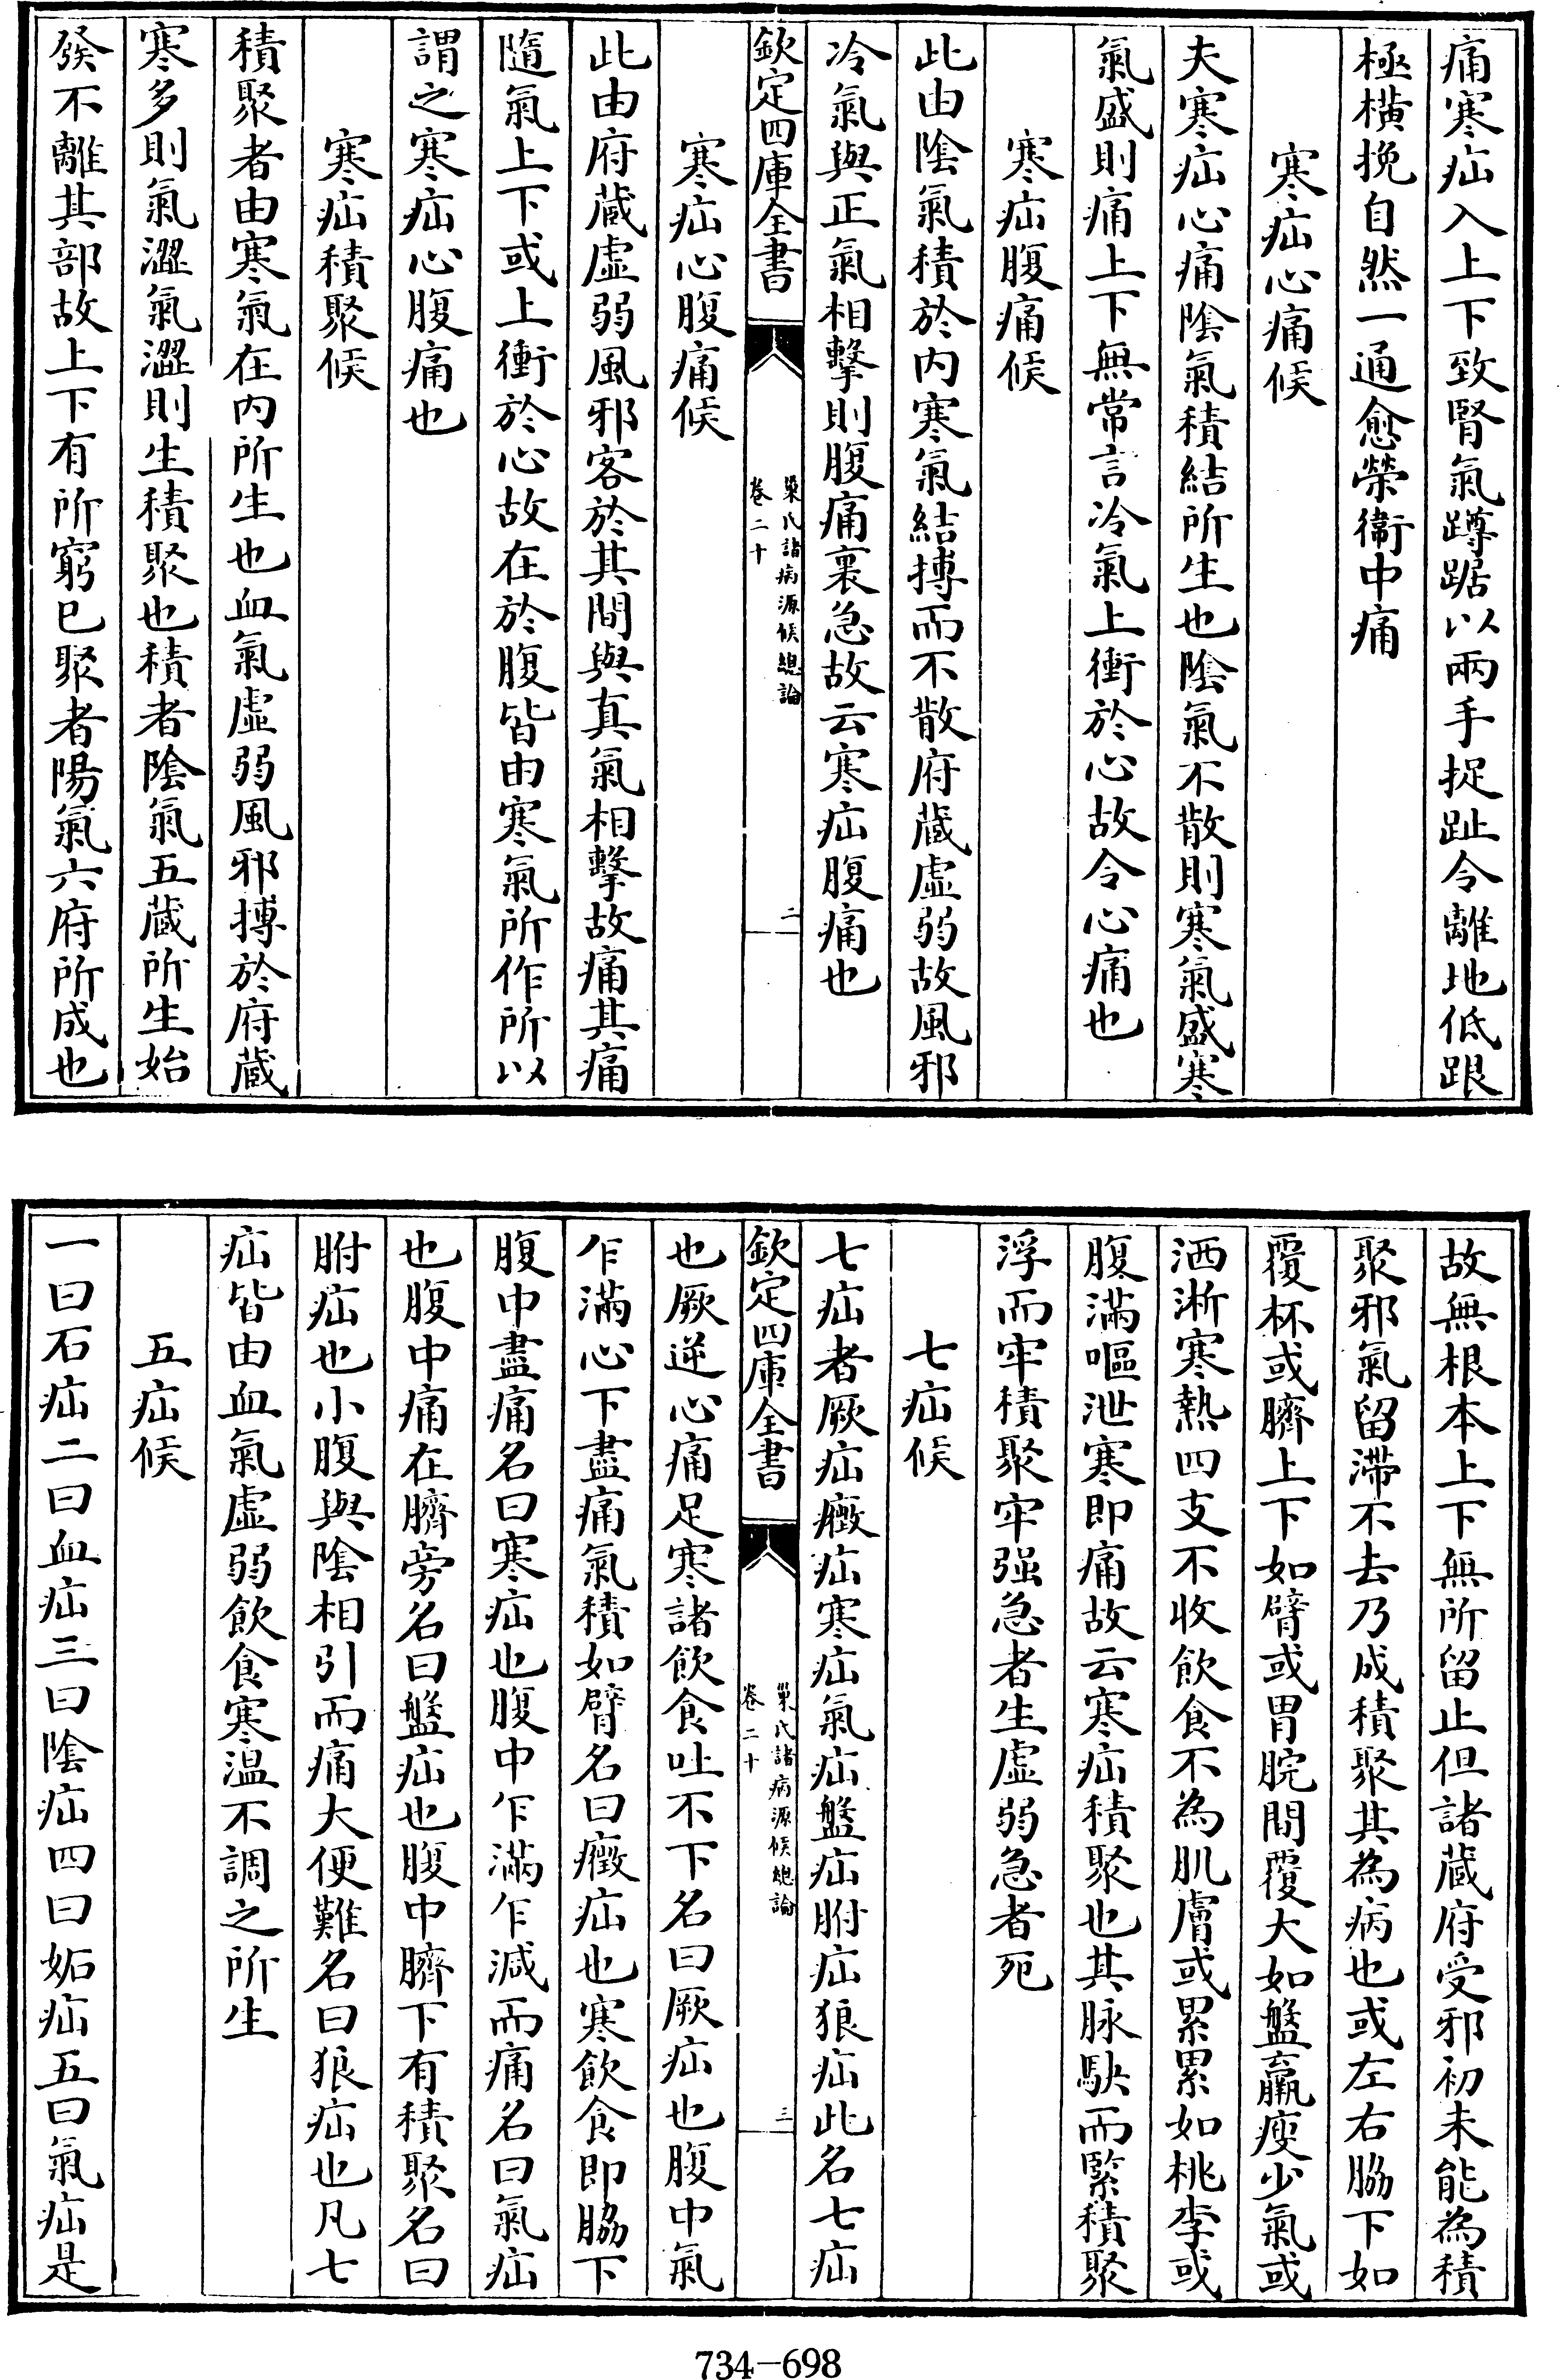 痛寒疝入上下致腎氣蹲踞以兩手捉趾令離地低跟
極横挽自然一通愈榮衛中痛
寒疝心痛候
夫寒疝心痛隂氣積結所生也隂氣不散則寒氣盛寒
氣盛則痛上下無常言冷氣上衝於心故令心痛也
寒疝腹痛候
此由隂氣積於内寒氣結搏而不散府蔵虚弱故風邪
冷氣與正氣相擊則腹痛裏急故云寒疝腹痛也
欽定四庫全書
巢氏諸病源候總論
卷二十
二
寒疝心腹痛候
此由府蔵虚弱風邪客於其間與真氣相擊故痛其痛
隨氣上下或上衝於心故在於腹皆由寒氣所作所以
謂之寒疝心腹痛也
寒疝積聚候
積聚者由寒氣在内所生也血氣虚弱風邪搏於府蔵
寒多則氣澀氣澀則生積聚也積者隂氣五蔵所生始
發不離其部故上下有所窮已聚者陽氣六府所成也
故無根本上下無所留止但諸蔵府受邪初未能為積
聚邪氣留滯不去乃成積聚其為病也或左右脇下如
覆杯或臍上下如臂或胃脘間覆大如盤羸瘦少氣或
洒淅寒熱四支不收飲食不為肌膚或累累如桃李或
腹滿嘔泄寒即痛故云寒疝積聚也其脉駃而緊積聚
浮而牢積聚牢强急者生虚弱急者死
七疝候
七疝者厥疝癥疝寒疝氣疝盤疝胕疝狼疝此名七疝
欽定四庫全書
巢氏諸病源候總論
卷二十
三
也厥逆心痛足寒諸飲食吐不下名曰厥疝也腹中氣
乍滿心下盡痛氣積如臂名曰癥疝也寒飲食即脇下
腹中盡痛名曰寒疝也腹中乍滿乍減而痛名曰氣疝
也腹中痛在臍旁名曰盤疝也腹中臍下有積聚名曰
胕疝也小腹與陰相引而痛大便難名曰狼疝也凡七
疝皆由血氣虚弱飲食寒温不調之所生
五疝候
一曰石疝二曰血疝三曰隂疝四曰妬疝五曰氣疝是
734-698